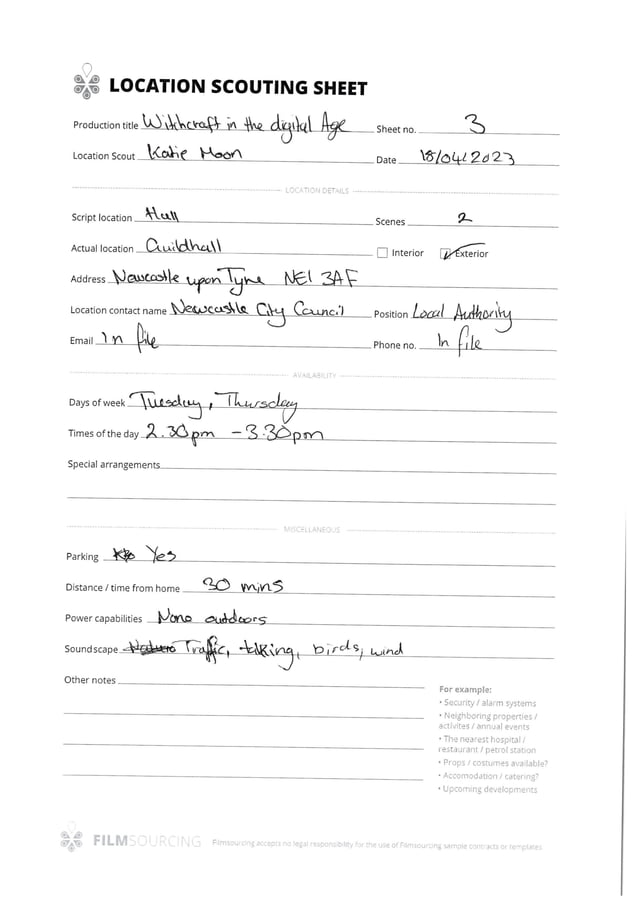 LOCATION SCOUTING SHEET
Production title Witchcraft in the digital Age Sheet no. 3
Location Scout Katie Moon Date 18/04/2023
LOCATION DETAILS
Script location Hull Scenes 2
Actual location Guildhall Interior Exterior
Address Newcastle upon Tyne NE1 3AF
Location contact name Newcastle City Council Position Local Authority
Email In file Phone no. In file
AVAILABILITY
Days of week Tuesday, Thursday
Times of the day 2.30pm - 3.30pm
Special arrangements
MISCELLANEOUS
Parking Yes
Distance / time from home 30 mins
Power capabilities None outdoors
Soundscape Traffic, talking, birds, wind
Other notes
For example:
• Security / alarm systems
• Neighboring properties /
activites / annual events
• The nearest hospital /
restaurant / petrol station
• Props / costumes available?
• Accomodation / catering?
• Upcoming developments
FILMSOURCING Filmsourcing accepts no legal responsibility for the use of Filmsourcing sample contracts or templates